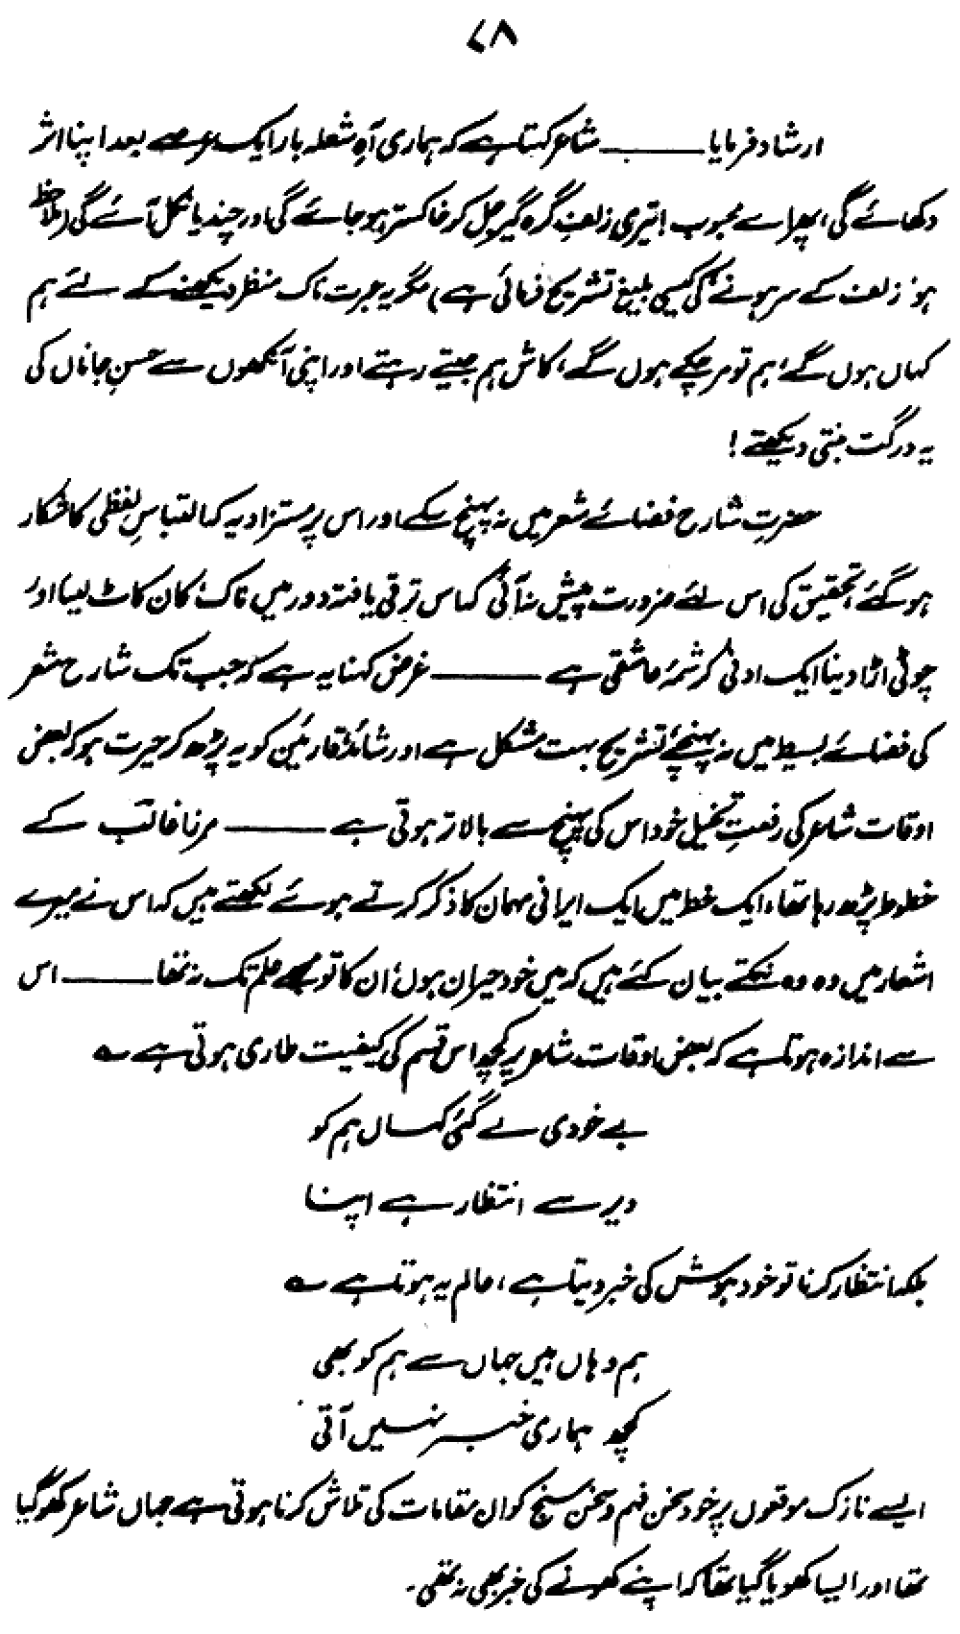 ۷۸
ارشاد فرمایا ــــــــ شاعر کہتا ہے کہ ہماری آہِ شعلہ بار ایک عرصے بعد اپنا اثر
دکھائے گی، پھر اے محبوب! تیری زلفِ گرہ گیر جل کر خاکستر ہو جائے گی اور چندیا نکل آئے گی (ملاحظہ
ہو، زلف کے سر ہونے کی کیسی بلیغ تشریح فرمائی ہے) مگر یہ عبرت ناک منظر دیکھنے کے لئے ہم
کہاں ہوں گے، ہم تو مر چکے ہوں گے، کاش ہم جیتے رہتے اور اپنی آنکھوں سے حسنِ جاناں کی
یہ درگت بنتی دیکھتے!
حضرتِ شارح فضائے شعر میں نہ پہنچ سکے اور اس پر مستزاد یہ کہ التباسِ لفظی کا شکار
ہو گئے، تحقیق کی اس لئے ضرورت پیش نہ آئی کہ اس ترقی یافتہ دور میں ناک، کان کاٹ لینا اور
چوٹی اڑا دینا ایک ادنیٰ کرشمۂ عاشقی ہے ــــــــ غرض کہنا یہ ہے کہ جب تک شارح شعر
کی فضائے بسیط میں نہ پہنچے، تشریح بہت مشکل ہے اور شائد قارئین کو یہ پڑھ کر حیرت ہو کہ بعض
اوقات شاعر کی رفعتِ تخیل خود اس کی پہنچ سے بالاتر ہوتی ہے ــــــــ مرزا غالب کے
خطوط پڑھ رہا تھا، ایک خط میں ایک ایرانی مہمان کا ذکر کرتے ہوئے لکھتے ہیں کہ اس نے میرے
اشعار میں وہ وہ نکتے بیان کئے ہیں کہ میں خود حیران ہوں، ان کا تو مجھے علم تک نہ تھا ــــــــ اس
سے اندازہ ہوتا ہے کہ بعض اوقات شاعر پر کچھ اس قسم کی کیفیت طاری ہوتی ہے ؎
بے خودی لے گئی کہاں ہم کو
دیر سے انتظار ہے اپنا
بلکہ انتظار کرنا تو خود ہوش کی خبر دیتا ہے، عالم یہ ہوتا ہے ؎
ہم وہاں ہیں جہاں سے ہم کو بھی
کچھ ہماری خبر نہیں آتی
ایسے نازک موقعوں پر خود سخن فہم و سخن سنج کو ان مقامات کی تلاش کرنا ہوتی ہے جہاں شاعر کھو گیا
تھا اور ایسا کھویا گیا تھا کہ اپنے کھونے کی خبر بھی نہ تھی۔